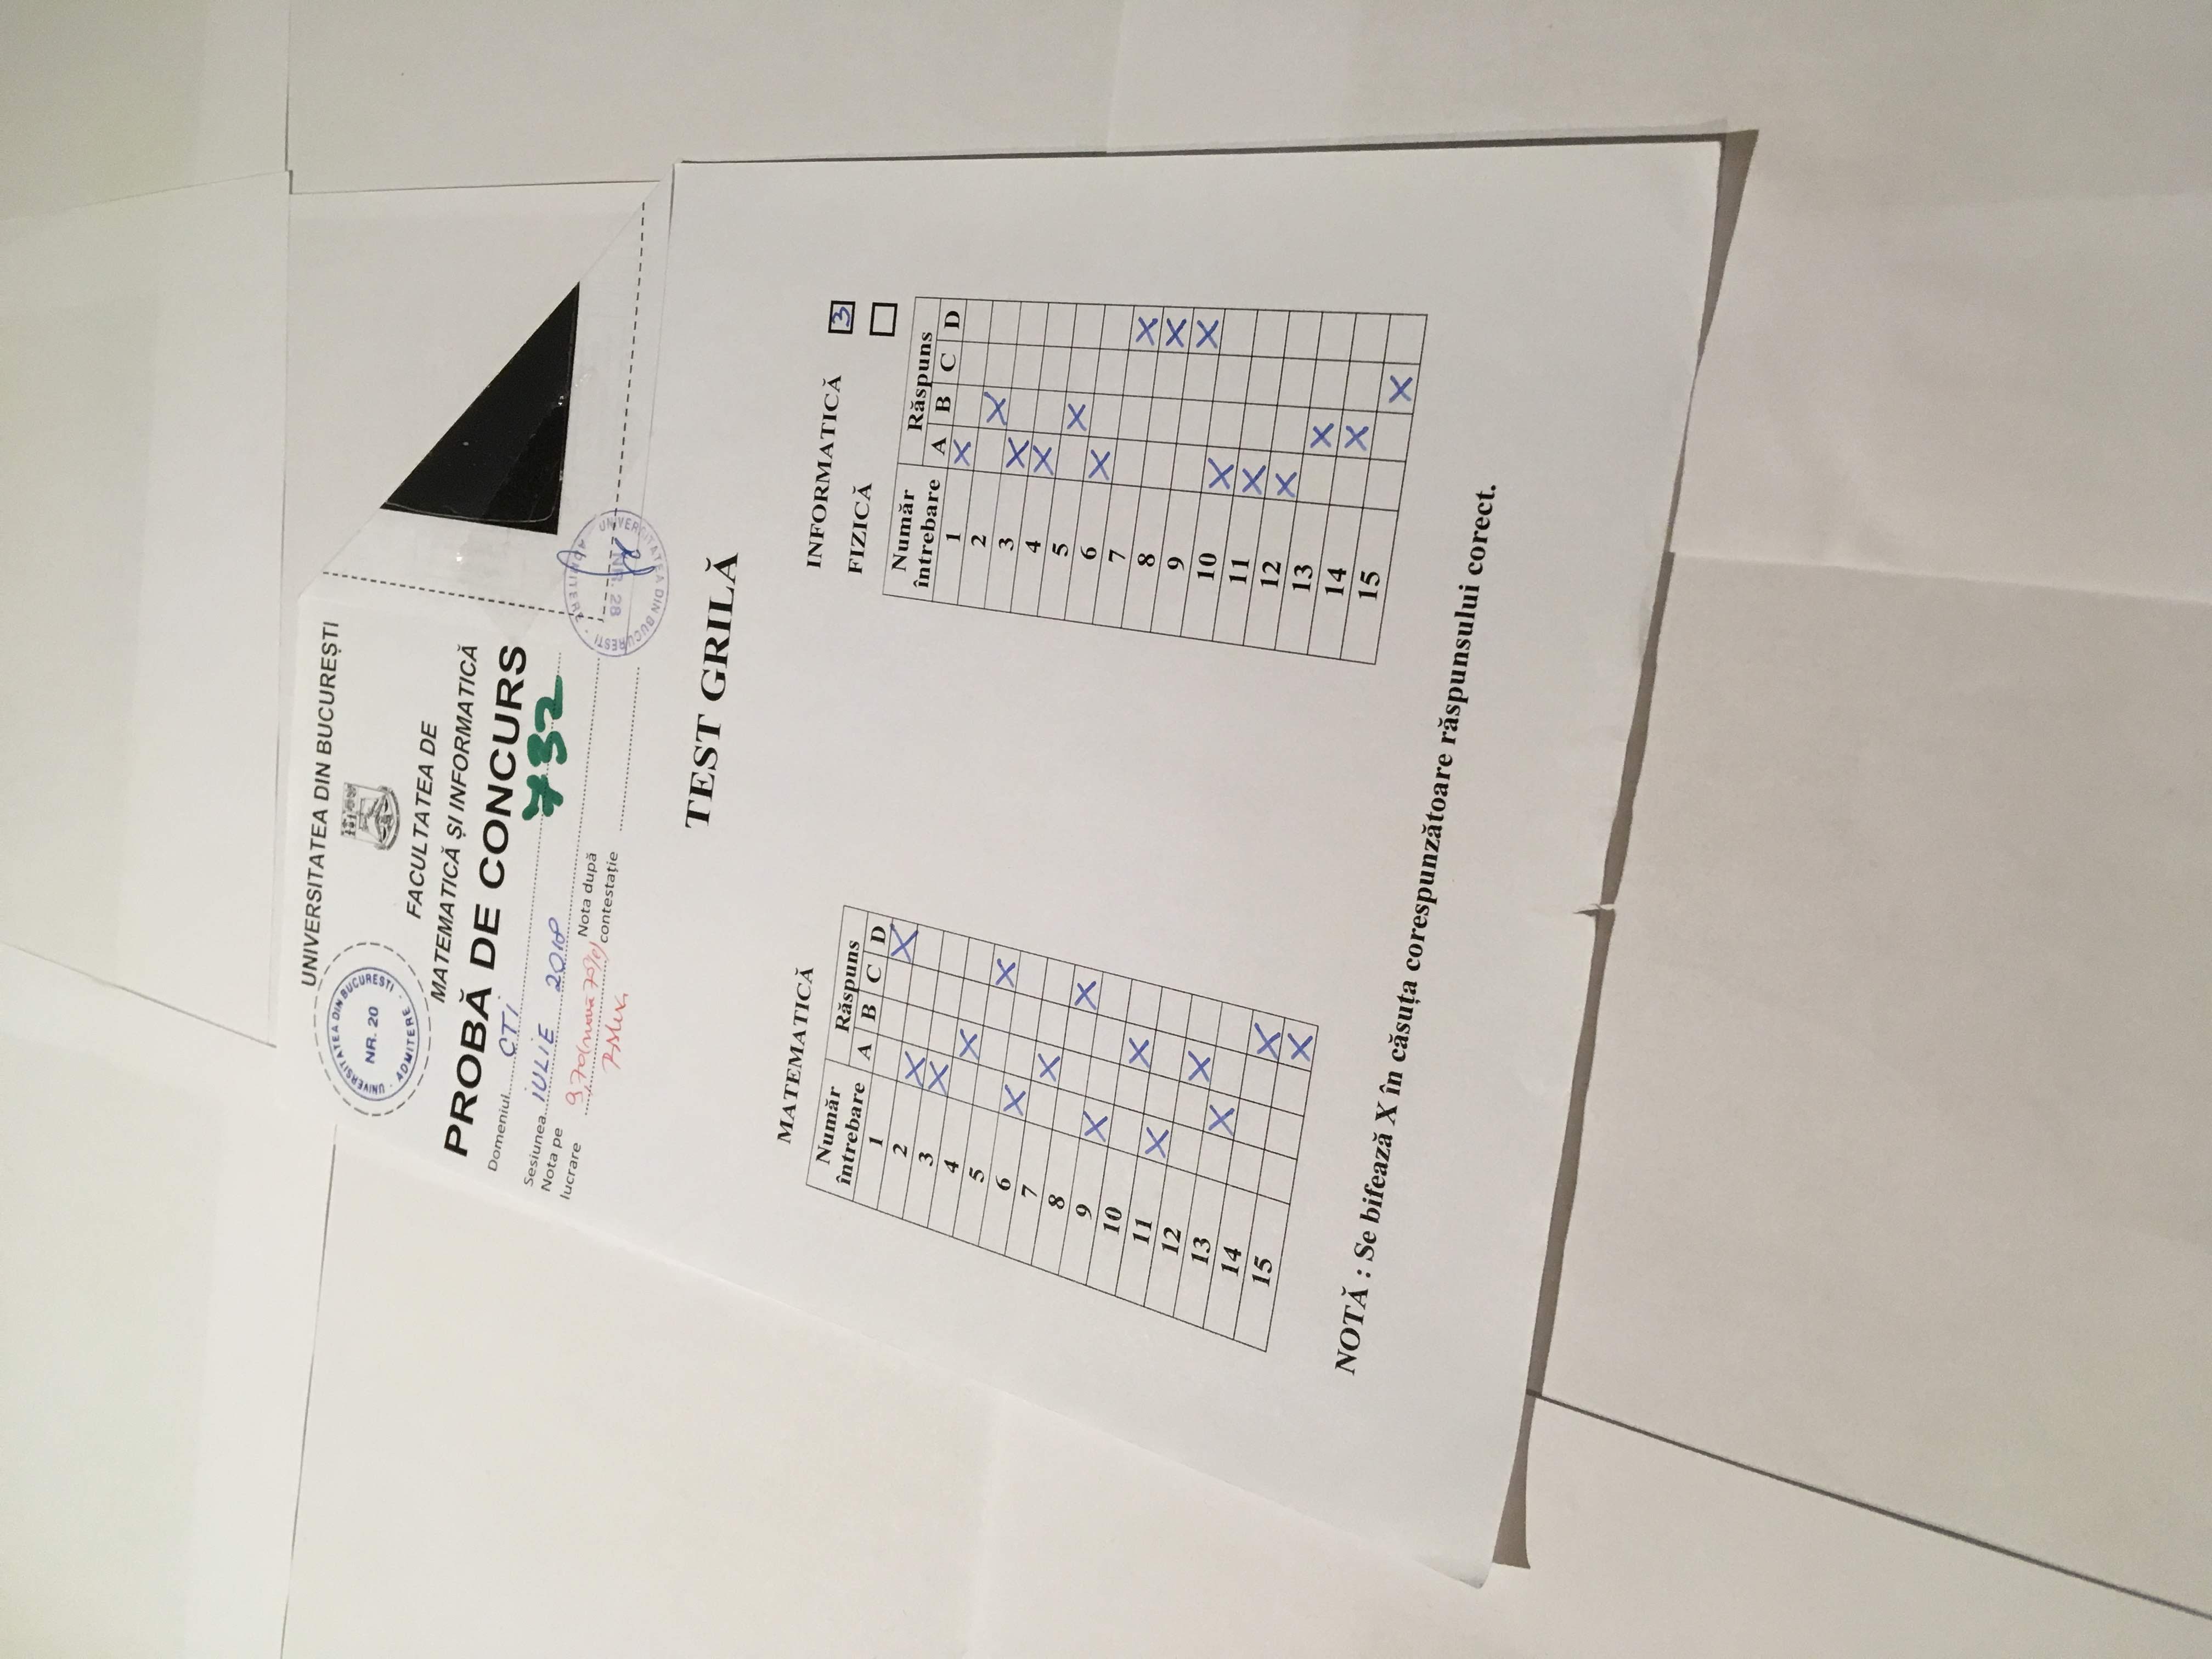 UNIVERSITATEA DIN BUCUREȘTI
UNIVERSITATEA DIN BUCUREȘTI
NR. 20
ADMITERE
FACULTATEA DE
MATEMATICĂ ȘI INFORMATICĂ
PROBĂ DE CONCURS
Domeniul CTi
732
Sesiunea iULiE 2018
Nota pe lucrare 9,70 (nouă 70%)
Nota după contestație
UNIVERSITATEA DIN BUCURESTI
NR. 28
ADMITERE
TEST GRILĂ
MATEMATICĂ
Număr întrebare Răspuns
A B C D
1 X
2 X
3 X
4 X
5 X
6 X
7 X
8 X
9 X
10 X
11 X
12 X
13 X
14 X
15 X
INFORMATICĂ 3
FIZICĂ
Număr întrebare Răspuns
A B C D
1 X
2 X
3 X
4 X
5 X
6 X
7 X
8 X
9 X
10 X
11 X
12 X
13 X
14 X
15 X
NOTĂ : Se bifează X în căsuța corespunzătoare răspunsului corect.